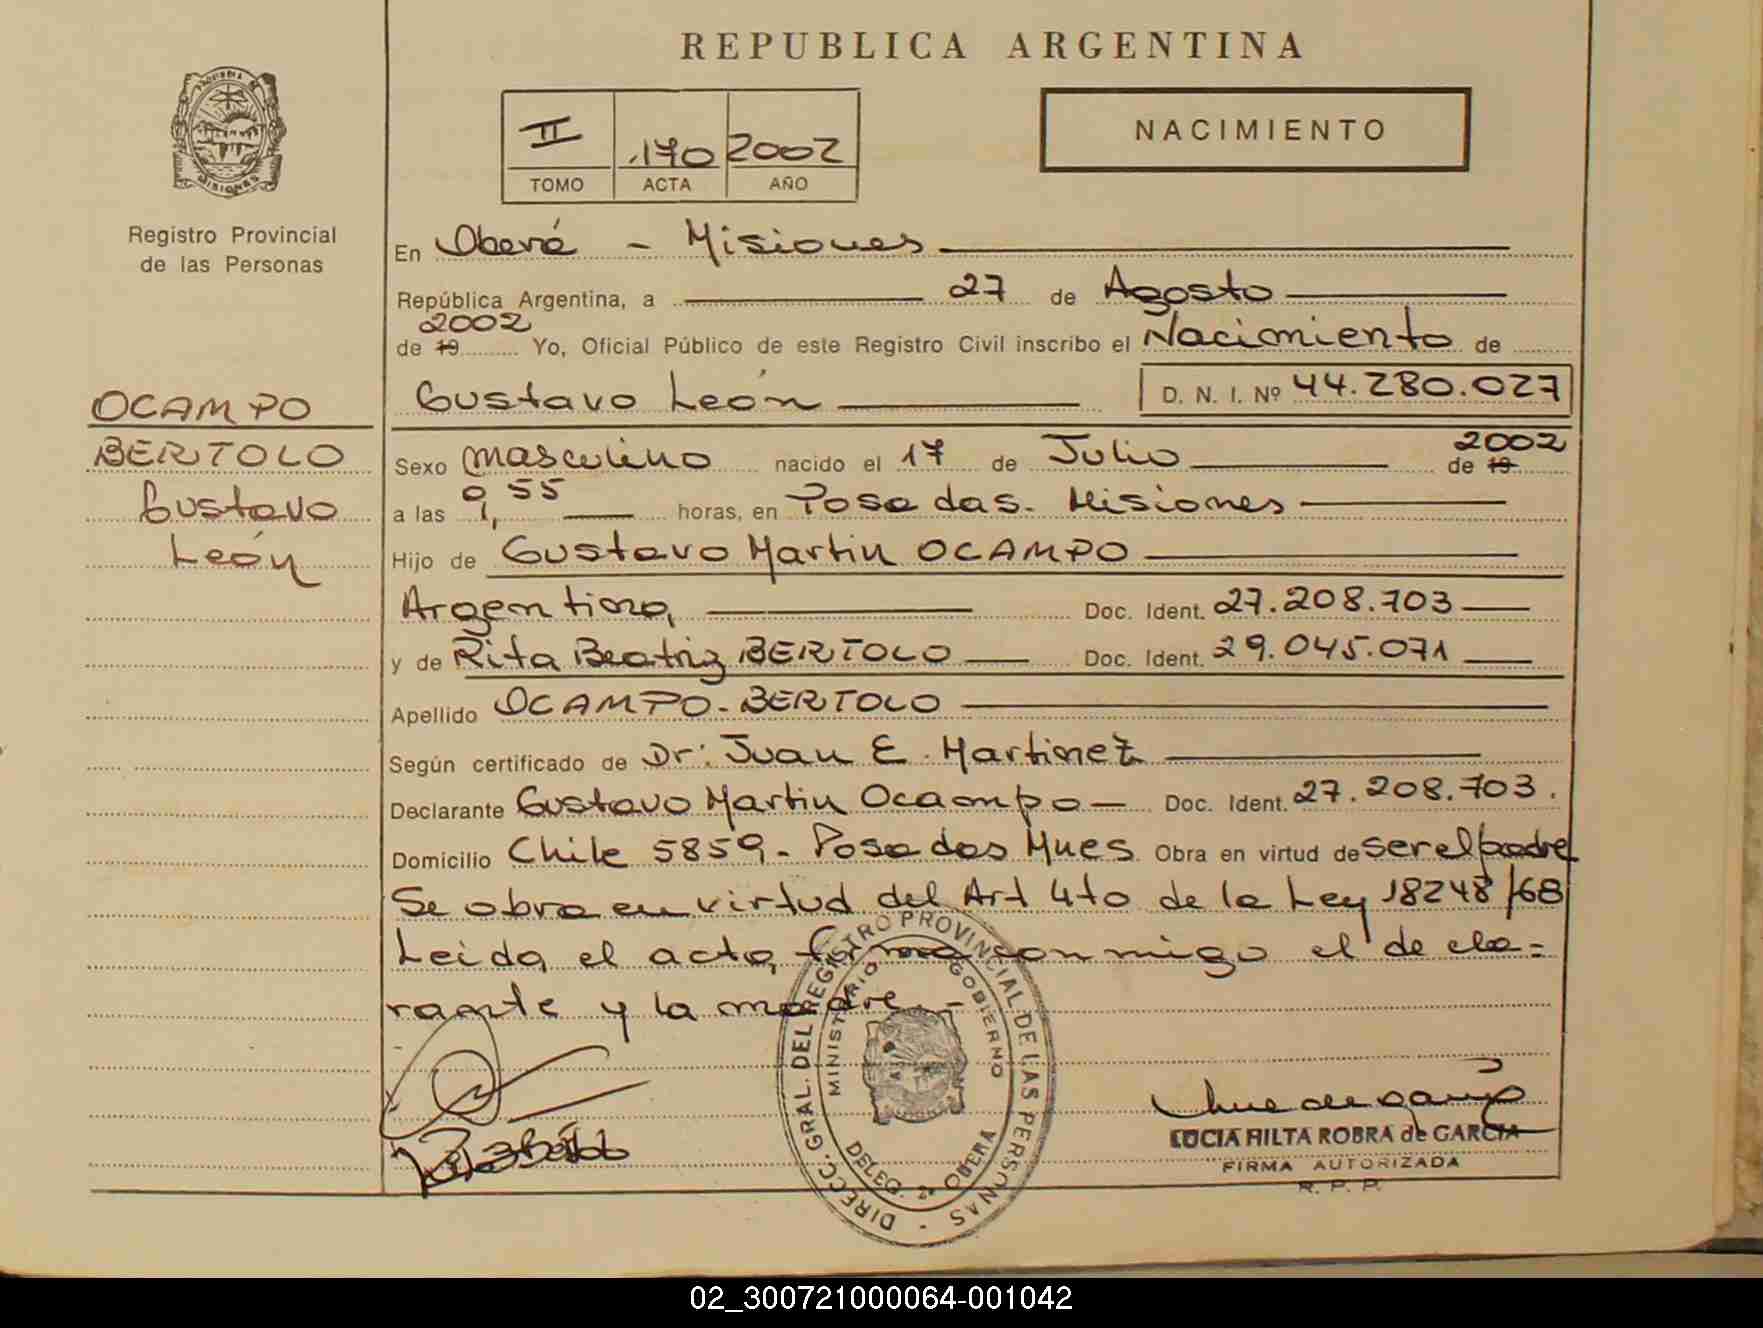 REPUBLICA ARGENTINA
II .170 2002
TOMO ACTA AÑO
NACIMIENTO
Registro Provincial
de las Personas
OCAMPO
BERTOLO
Gustavo
León
En Oberá - Misiones
República Argentina, a 27 de Agosto
de 19 2002 Yo, Oficial Público de este Registro Civil inscribo el Nacimiento de
Gustavo León D. N. I. Nº 44.280.027
Sexo masculino nacido el 17 de Julio de 19 2002
a las 9,55 horas, en Posadas. Misiones
Hijo de Gustavo Martin OCAMPO
Argentino, Doc. Ident. 27.208.703
y de Rita Beatriz BERTOLO Doc. Ident. 29.045.071
Apellido OCAMPO-BERTOLO
Según certificado de Dr: Juan E. Martinez
Declarante Gustavo Martin Ocampo Doc. Ident. 27.208.703.
Domicilio Chile 5859- Posadas Mnes Obra en virtud de ser el padre
Se obra en virtud del Art 4to de la Ley 18248/68
Leida el acta, firma conmigo el decla=
rante y la madre.-
DIRECC. GRAL. DEL REGISTRO PROVINCIAL DE LAS PERSONAS -
MINISTERIO GOBIERNO
DELEG. 2ª OBERA
LUCIA HILTA ROBRA de GARCIA
FIRMA AUTORIZADA
R. P. P.
02_300721000064-001042